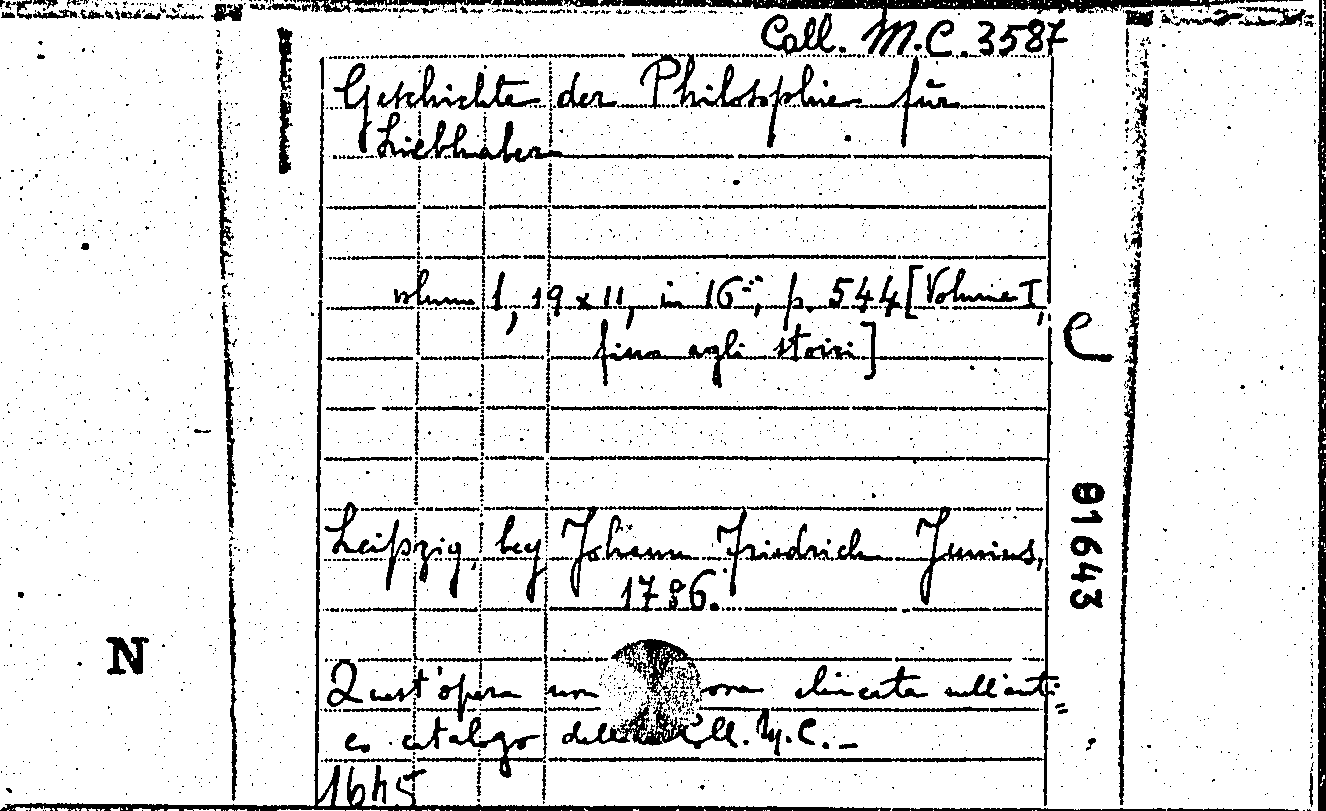 Coll. M.C. 3587
Geschichte der Philosophie für
Liebhaber
volume 1, 19 x 11, in 16°, p. 544 [Volume I,
fino agli stoici]
C
Leipzig, bey Johann Friedrich Junius,
1786.
01643
N
Quest'opera non elencata nell'anti=
co catalogo della Coll. M.C. —
1645